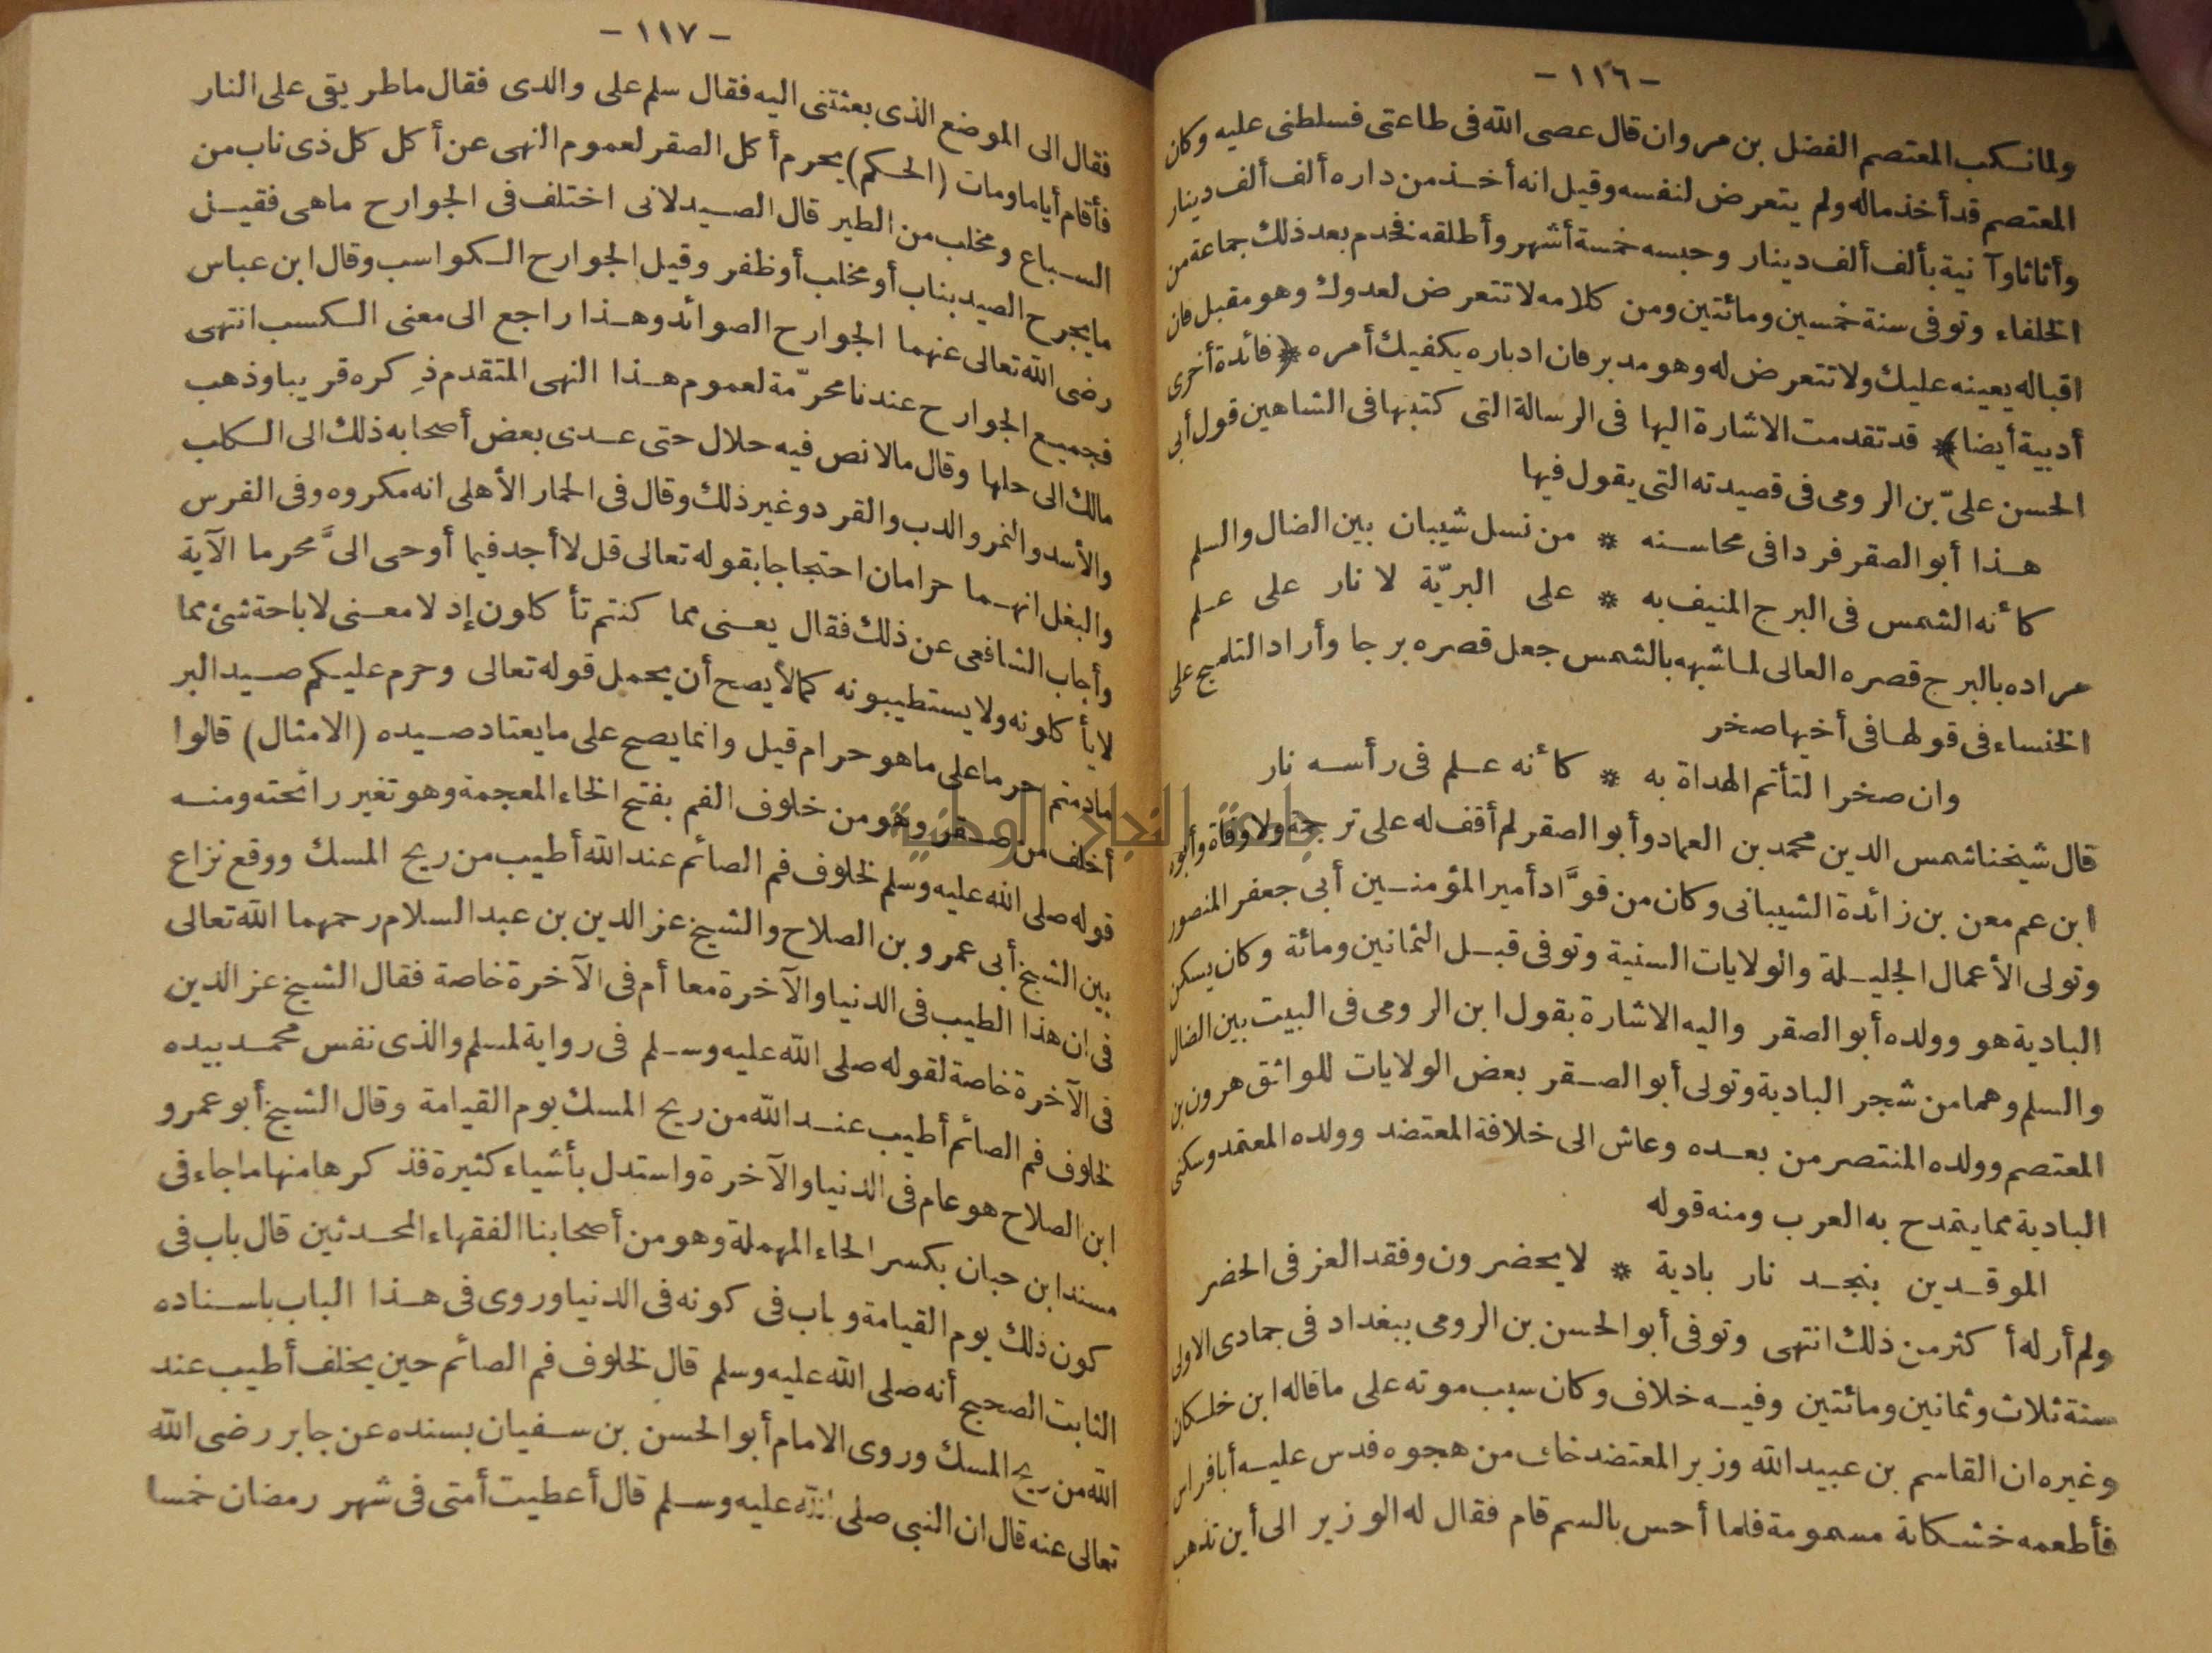 – ١١٦ –
ولما نكب المعتصم الفضل بن مروان قال عصى الله فى طاعتى فسلطنى عليه وكان
المعتصم قد أخذ ماله ولم يتعرض لنفسه وقيل انه أخذ من داره ألف ألف دينار
وأثاثا وآنية بألف ألف دينار وحبسه خمسة أشهر وأطلقه فخدم بعد ذلك جماعة من
الخلفاء وتوفى سنة خمسين ومائتين ومن كلامه لا تتعرض لعدوك وهو مقبل فان
اقباله يعينه عليك ولا تتعرض له وهو مدبر فان ادباره يكفيك أمره ﴿ فائدة أخرى
أدبية أيضا ﴾ قد تقدمت الاشارة اليها فى الرسالة التى كتبها فى الشاهين قول أبى
الحسن علىّ بن الرومى فى قصيدته التى يقول فيها
هذا أبو الصقر فردا فى محاسنه * من نسل شيبان بين الضال والسلم
كأنه الشمس فى البرج المنيف به * على البريّة لا نار على علم
مراده بالبرج قصره العالى لما شبهه بالشمس جعل قصره برجا وأراد التلميح على
الخنساء فى قولها فى أخيها صخر
وان صخرا لتأتم الهداة به * كأنه علم فى رأسه نار
قال شيخنا شمس الدين محمد بن العماد وأبو الصقر لم أقف له على ترجمة ولا وفاة وأبوه
ابن عم معن بن زائدة الشيبانى وكان من قوّاد أمير المؤمنين أبى جعفر المنصور
وتولى الأعمال الجليلة والولايات السنية وتوفى قبل الثمانين ومائة وكان يسكن
البادية هو وولده أبو الصقر واليه الاشارة بقول ابن الرومى فى البيت بين الضال
والسلم وهما من شجر البادية وتولى أبو الصقر بعض الولايات للواثق هرون بن
المعتصم وولده المنتصر من بعده وعاش الى خلافة المعتضد وولده المعتمد وسكنى
البادية مما يتمدح به العرب ومنه قوله
الموقدين بنجد نار بادية * لا يحضرون وفقد العز فى الحضر
ولم أر له أكثر من ذلك انتهى وتوفى أبو الحسن بن الرومى ببغداد فى جمادى الاولى
سنة ثلاث وثمانين ومائتين وفيه خلاف وكان سبب موته على ما قاله ابن خلكان
وغيره ان القاسم بن عبيد الله وزير المعتضد خاف من هجوه فدس عليه أبا فراس
فأطعمه خشكانة مسمومة فلما أحس بالسم قام فقال له الوزير الى أين تذهب
– ١١٧ –
فقال الى الموضع الذى بعثتنى اليه فقال سلم على والدى فقال ما طريقى على النار
فأقام أياما ومات (الحكم) يحرم أكل الصقر لعموم النهى عن أكل كل ذى ناب من
السباع ومخلب من الطير قال الصيدلانى اختلف فى الجوارح ما هى فقيل
ما يجرح الصيد بناب أو مخلب أو ظفر وقيل الجوارح الكواسب وقال ابن عباس
رضى الله تعالى عنهما الجوارح الصوائد وهذا راجع الى معنى الكسب انتهى
فجميع الجوارح عندنا محرّمة لعموم هذا النهى المتقدم ذكره قريبا وذهب
مالك الى حلها وقال مالا نص فيه حلال حتى عدى بعض أصحابه ذلك الى الكلب
والأسد والنمر والدب والقرد وغير ذلك وقال فى الحمار الأهلى انه مكروه وفى الفرس
والبغل انهما حرامان احتجاجا بقوله تعالى قل لا أجد فيما أوحى الىَّ محرما الآية
وأجاب الشافعى عن ذلك فقال يعنى مما كنتم تأكلون إذ لا معنى لاباحة شئ مما
لا يأكلونه ولا يستطيبونه كما لا يصح أن يحمل قوله تعالى وحرم عليكم صيد البر
ما دمتم حرما على ما هو حرام قبل وانما يصح على ما يعتاد صيده (الامثال) قالوا
أخلف من صقر وهو من خلوف الفم بفتح الخاء المعجمة وهو تغير رائحته ومنه
قوله صلى الله عليه وسلم لخلوف فم الصائم عند الله أطيب من ريح المسك ووقع نزاع
بين الشيخ أبى عمرو بن الصلاح والشيخ عز الدين بن عبد السلام رحمهما الله تعالى
فى ان هذا الطيب فى الدنيا والآخرة معا أم فى الآخرة خاصة فقال الشيخ عز الدين
فى الآخرة خاصة لقوله صلى الله عليه وسلم فى رواية لمسلم والذى نفس محمد بيده
لخلوف فم الصائم أطيب عند الله من ريح المسك يوم القيامة وقال الشيخ أبو عمرو
ابن الصلاح هو عام فى الدنيا والآخرة واستدل بأشياء كثيرة فذكرها منها ما جاء فى
مسند ابن حبان بكسر الحاء المهملة وهو من أصحابنا الفقهاء المحدثين قال باب فى
كون ذلك يوم القيامة وباب فى كونه فى الدنيا وروى فى هذا الباب باسناده
الثابت الصحيح أنه صلى الله عليه وسلم قال لخلوف فم الصائم حين يخلف أطيب عند
الله من ريح المسك وروى الامام أبو الحسن بن سفيان بسنده عن جابر رضى الله
تعالى عنه قال ان النبى صلى الله عليه وسلم قال أعطيت أمتى فى شهر رمضان خمسا
جامعة النجاح الوطنية